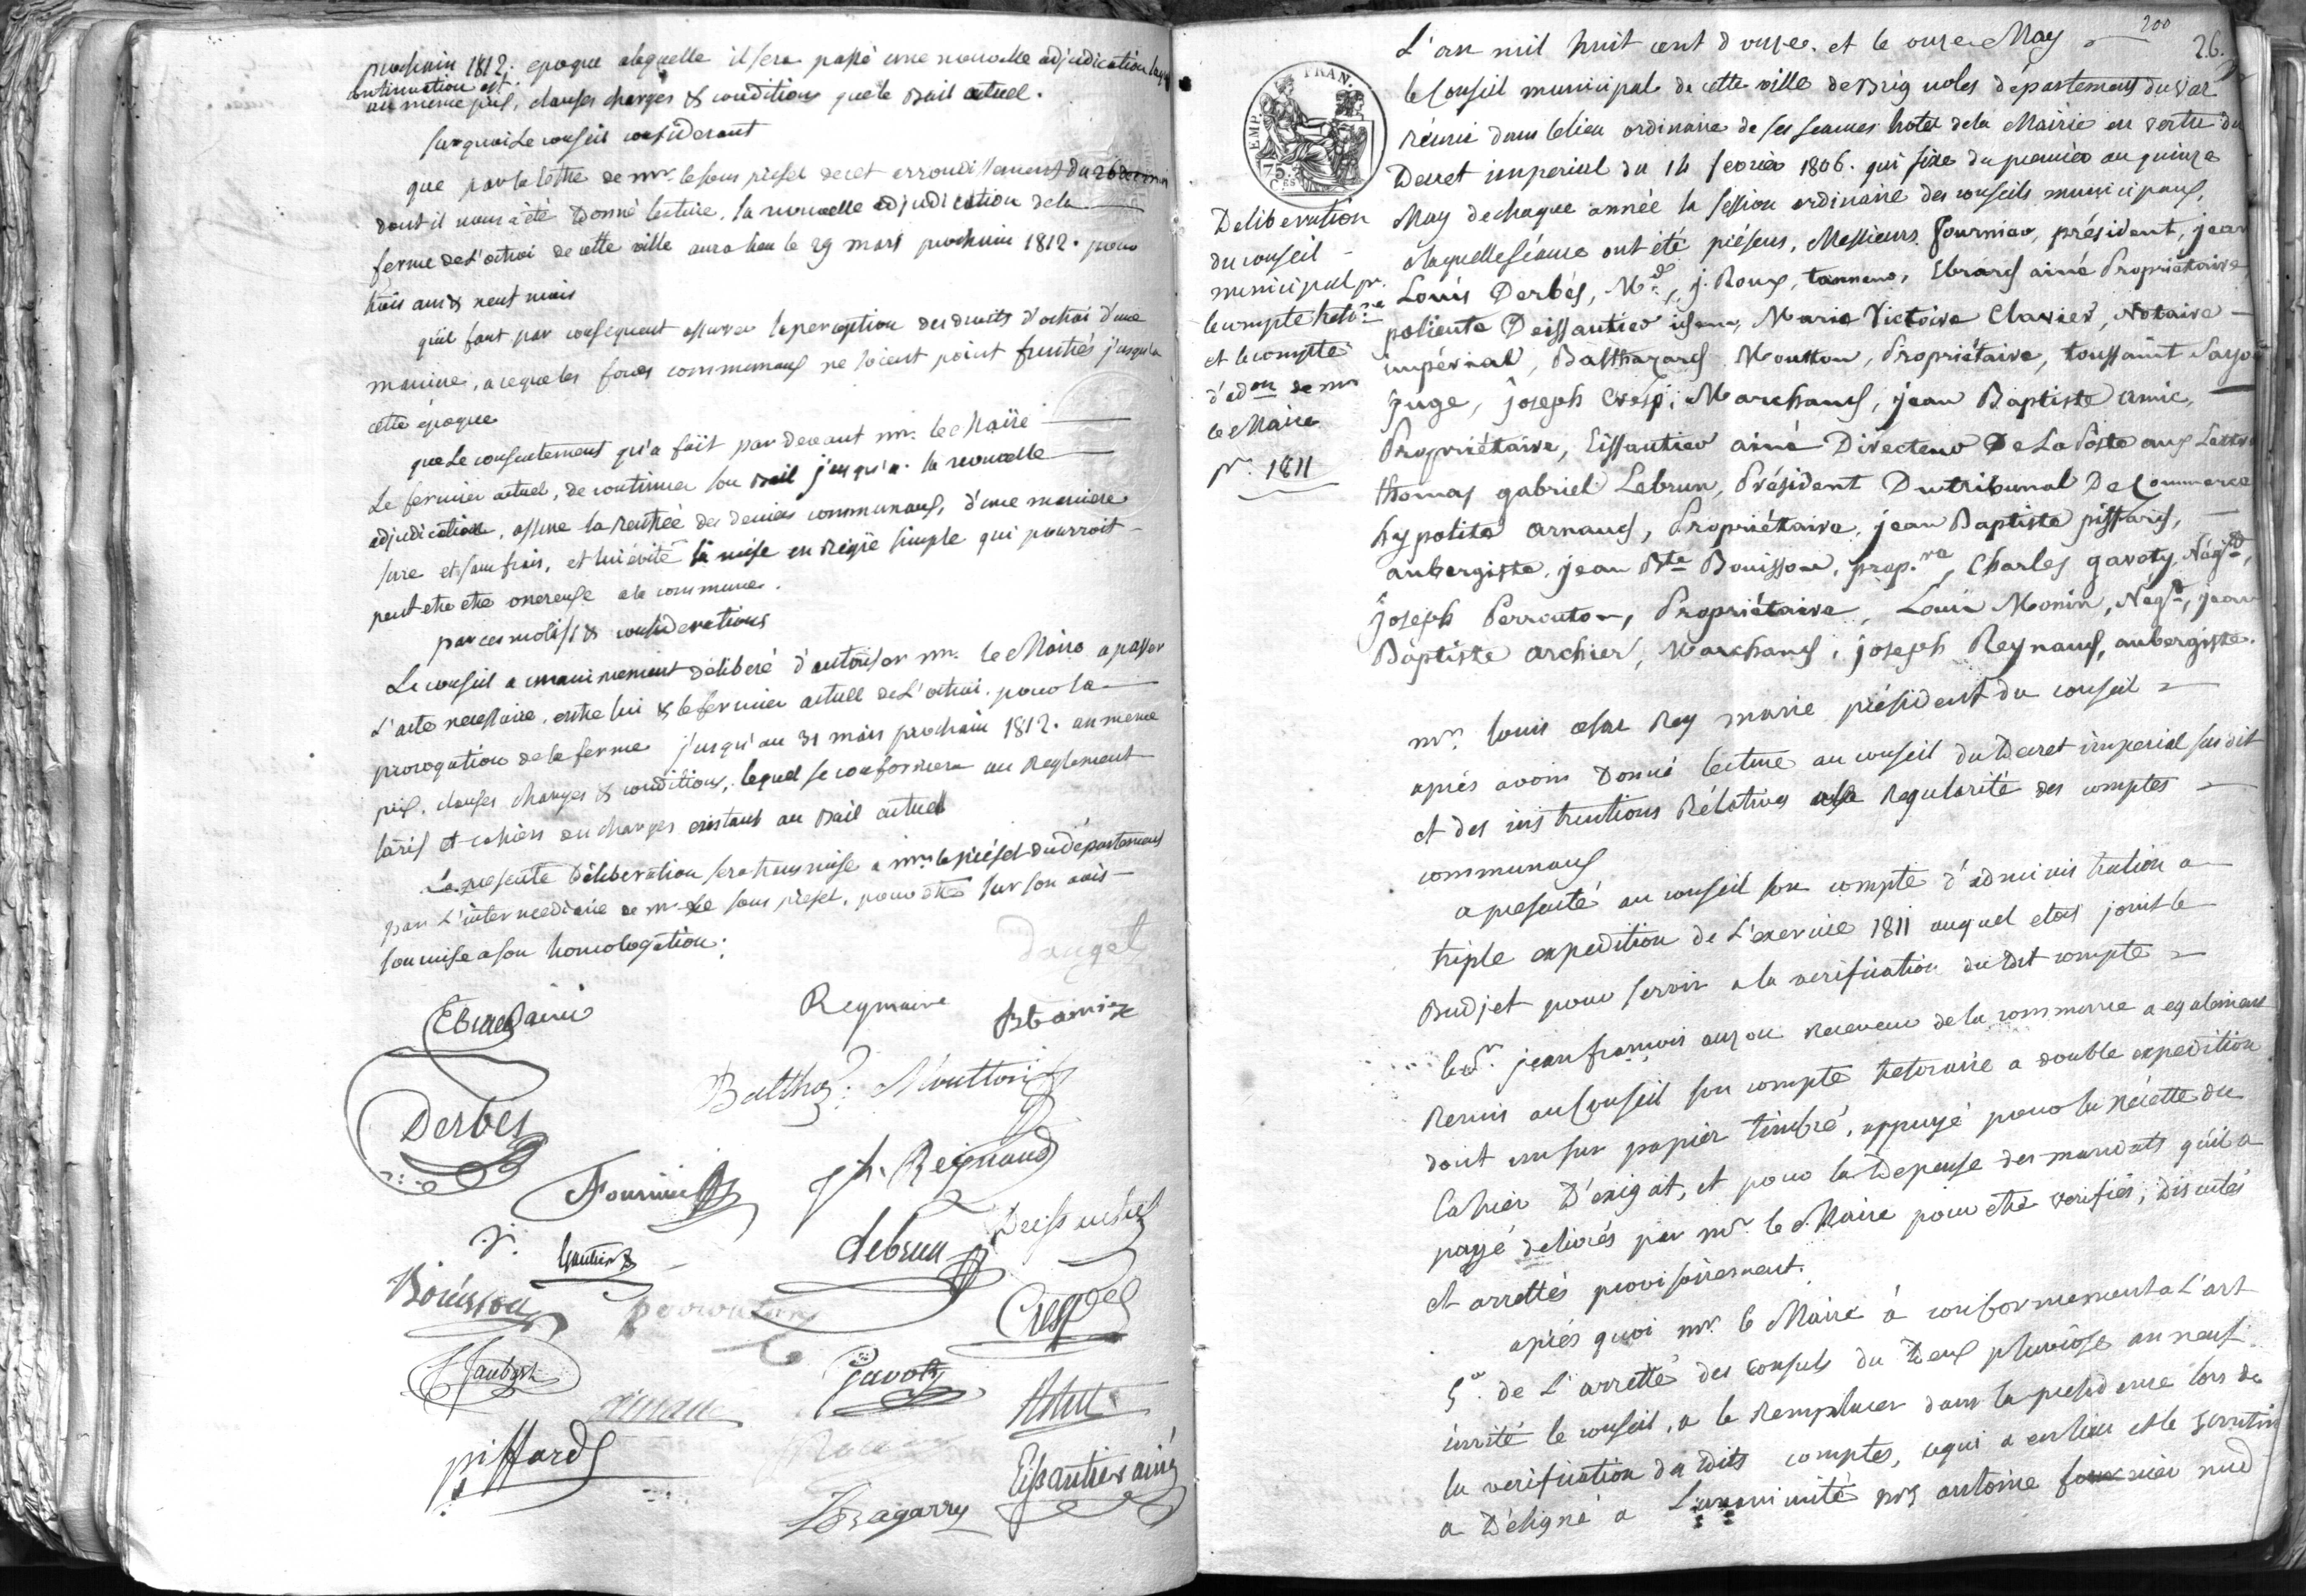 prochain 1812. epoque alaquelle il sera passé une nouvelle adjudication laquelle
continuation est
au meme prix, clauses charges & conditions que le Bail actuel.
sur quoi Le conseil considerant
que par la lettre de mr. le sous préfet de cet arrondissement du 26
dont il nous a été Donné lecture, la nouvelle adjudication de la
ferme de L'octroi de cette ville aura lieu le 29 mars prochain 1812. pour
trois ans & neuf mois
qu'il faut par consequent assurer la perception des droits d'octroi d'une
maniere, a ceque les fonds communaux ne soient point frustrés jusqu'a
cette époque
que Le consentement qu'a fait par devant mr. le Maire
Le fermier actuel, de continuer son Bail jusqu'a la nouvelle
adjudication, assure la rentrée des deniers communaux, d'une maniere
sure et sans frais, et lui évite la mise en Régie simple qui pourroit
peut etre etre onereuse a la commune.
par ces motifs & considerations
Le conseil a unanimement délibéré d'autoriser mr. le Maire a passer
L'acte necessaire, entre lui & le fermier actuel de L'octroi, pour la
prorogation de la ferme jusqu'au 31 mars prochain 1812. au meme
prix, clauses charges & conditions, lequel se conformera au Reglement
tarif et cahiers des charges existant au Bail actuel
La presente Déliberation sera transmise a mr. le préfet du département
par L'intermediaire de mr. Le sous préfet, pour etre sur son avis
soumise a son homologation.
Dauget
Ebrard ainé
Reymaire
Bte amic
Balthaz. Moutton
Derbes
Fournier
Jh. Reynaud
Gautier
Lebrun
Deissautier
Bouisson
perrouton
Crespi
Jaubert
Gavoty
piffard
Eissautier ainé
Bagarry
200
26.
L'an mil huit cent Douze. et le onze May
le Conseil municipal de cette ville de Brignoles département du Var
réuni dans le lieu ordinaire de ses seances hotel de la Mairie en vertu du
Decret imperial du 14 fevrier 1806. qui fixe du premier au quinze
May de chaque année la session ordinaire des conseils municipaux,
a laquelle séance ont été présens, Messieurs Fournier, président, jean
Louis Derbés, Md., j. Roux, tanneur, Ebrard ainé Propriétaire,
policute Deissautier, Marie Victoire Clavier, Notaire
impérial, Balthazard Moutton, Propriétaire, toussaint
Juge, joseph Crespi, Marchand, jean Baptiste amic,
Propriétaire, Eissautier ainé Directeur De La Poste aux Lettres
thomas gabriel Lebrun, Président Du tribunal De Commerce
hypolite arnaud, Propriétaire, jean Baptiste piffard,
aubergiste, jean Bte Bouisson, prop.re, Charles gavoty, Négt.,
joseph Perrouton, Propriétaire, Louis Monin, Négt., jean
Baptiste archier, Marchand, joseph Reynaud, aubergiste.
EMP. FRAN.
75 Ces.
Deliberation
du conseil
municipal pr.
le compte
et le compte
d'adon de mr
le Maire
pr. 1811
mr. Louis cesar Rey maire président du conseil
aprés avoir Donné lecture au conseil du Decret imperial susdit
et des instructions Rélatives a la Regularité des comptes
communaux
a presenté au conseil son compte d'administration a
triple expedition de L'exercice 1811 auquel etoit joint le
Budjet pour servir a la verification du dit compte
le sr. jean francois auzou Receveur de la commune a egalement
Remis au Conseil son compte a double expedition
dont un sur papier timbré, appuyé pour la récette du
Cahier D'exigat, et pour la Depense des mandats qu'il a
payé delivrés par mr. le Maire pour etre verifiés, discutés
et arrettés provisoirement.
aprés quoi mr. le Maire a conformement a L'art
5e. de L'arretté des Consuls du Deux pluviôse an neuf
invité le conseil, a le Remplacer dans la presidence lors de
la verification des dits comptes, ce qui a eu lieu et le scrutin
a Désigné a L'unanimité mr antoine fournier